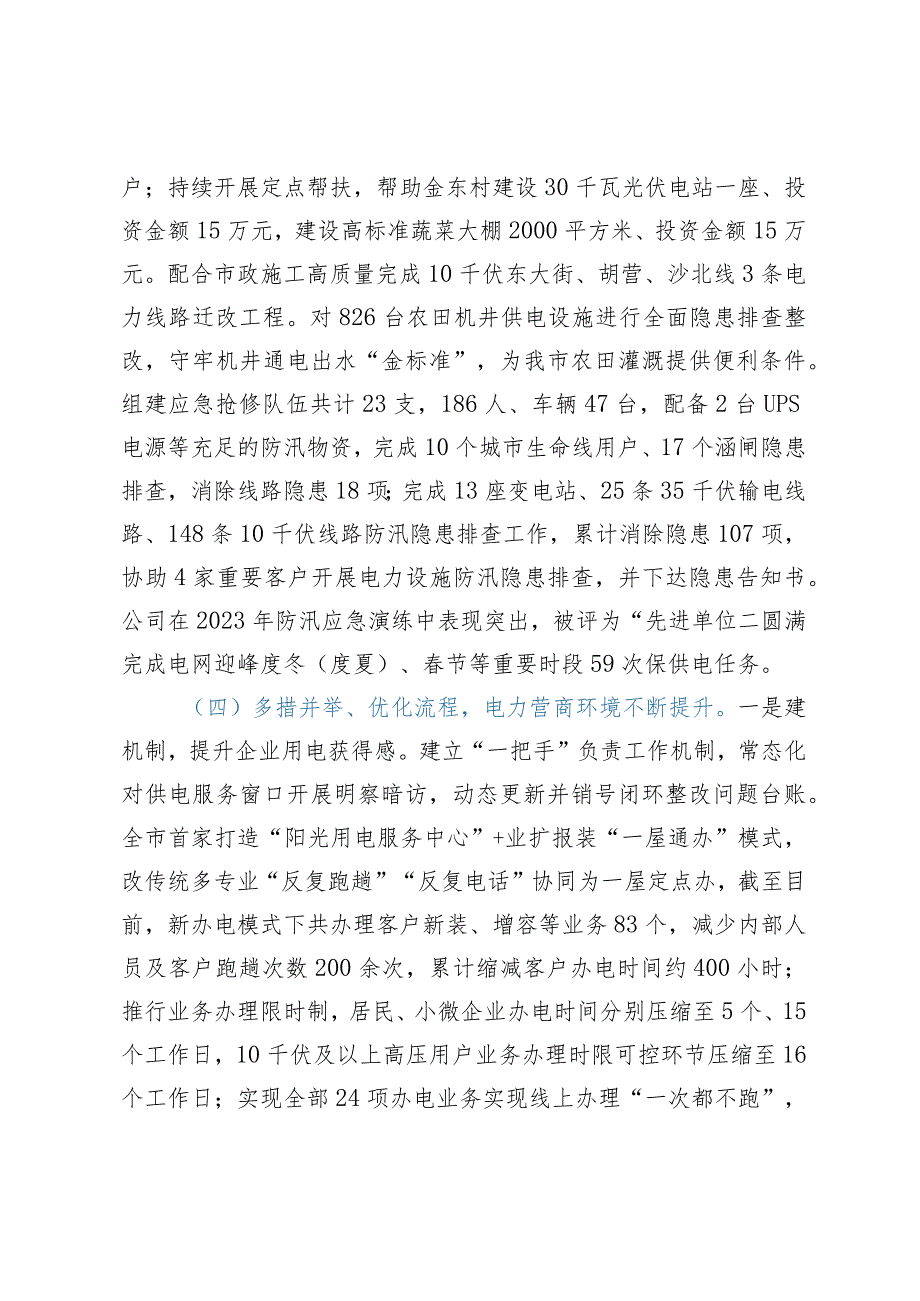 户；持续开展定点帮扶，帮助金东村建设 30 千瓦光伏电站一座、投
资金额 15 万元，建设高标准蔬菜大棚 2000 平方米、投资金额 15 万
元。配合市政施工高质量完成 10 千伏东大街、胡营、沙北线 3 条电
力线路迁改工程。对 826 台农田机井供电设施进行全面隐患排查整
改，守牢机井通电出水“金标准”，为我市农田灌溉提供便利条件。
组建应急抢修队伍共计 23 支，186 人、车辆 47 台，配备 2 台 UPS
电源等充足的防汛物资，完成 10 个城市生命线用户、17 个涵闸隐患
排查，消除线路隐患 18 项；完成 13 座变电站、25 条 35 千伏输电线
路、148 条 10 千伏线路防汛隐患排查工作，累计消除隐患 107 项，
协助 4 家重要客户开展电力设施防汛隐患排查，并下达隐患告知书。
公司在 2023 年防汛应急演练中表现突出，被评为“先进单位二圆满
完成电网迎峰度冬（度夏）、春节等重要时段 59 次保供电任务。
（四）多措并举、优化流程，电力营商环境不断提升。一是建
机制，提升企业用电获得感。建立“一把手”负责工作机制，常态化
对供电服务窗口开展明察暗访，动态更新并销号闭环整改问题台账。
全市首家打造“阳光用电服务中心”+业扩报装“一屋通办”模式，
改传统多专业“反复跑趟”“反复电话”协同为一屋定点办，截至目
前，新办电模式下共办理客户新装、增容等业务 83 个，减少内部人
员及客户跑趟次数 200 余次，累计缩减客户办电时间约 400 小时；
推行业务办理限时制，居民、小微企业办电时间分别压缩至 5 个、15
个工作日，10 千伏及以上高压用户业务办理时限可控环节压缩至 16
个工作日；实现全部 24 项办电业务实现线上办理“一次都不跑”，